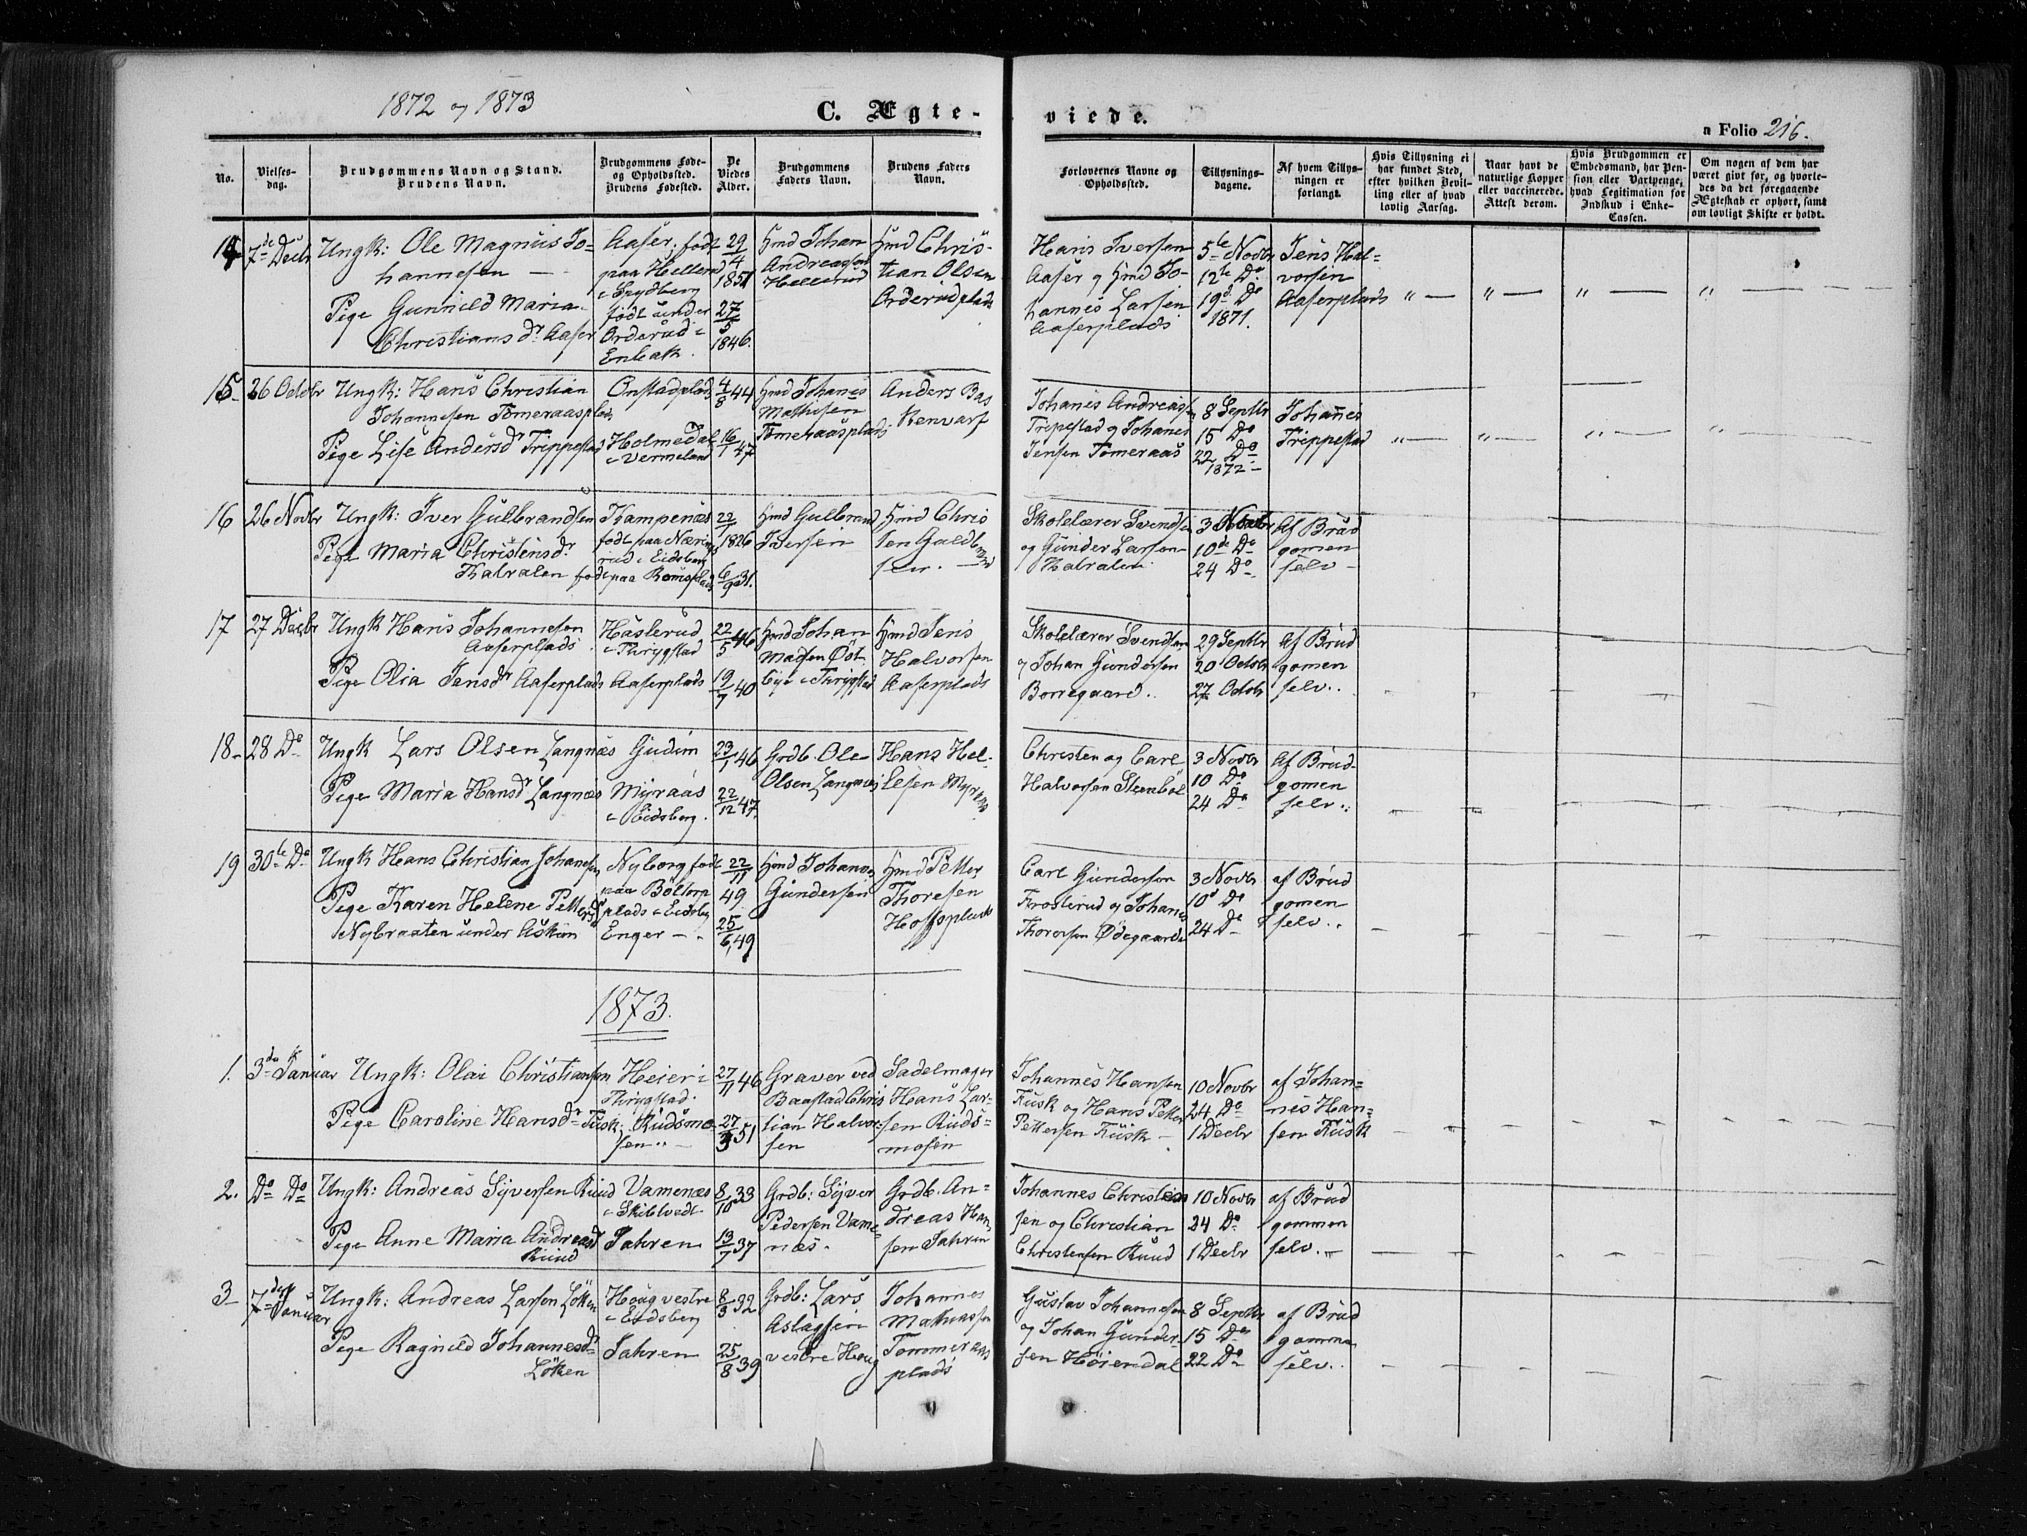 1872 og 1873
C. Ægte-
viede.
a Folio 216.
No.
Vielses-
dag.
Brudgommens Navn og Stand.
Brudens Navn.
Brudgommens Føde-
og Opholdssted.
Brudens Fødested.
De
Viedes
Alder.
Brudgommens
Faders Navn.
Brudens Faders
Navn.
Forlovernes Navne og
Opholdssted.
Tillysnings-
dagene.
Af hvem Tillys-
ningen er
forlangt.
Hvis Tillysning ei
har fundet Sted,
efter hvilken Bevil-
ling eller af hvad
lovlig Aarsag.
Naar havt de
naturlige Kopper
eller vaccinerede.
Attest derom.
Hvis Brudgommen er
Embedsmand, har Pen-
sion eller Vartpenge,
hvad Legitimation for
Indskud i Enke-
Cassen.
Om nogen af dem har
været givt før, og hvorle-
des da det foregaaende
Ægteskab er ophørt, samt
om lovligt Skifte er holdt.
14
7de Decbr
Ungk: Ole Magnus Jo-
hannesen
Pige Gunnild Maria
Christians dr Aaser
Aaser, født
paa Hellerud
i Spydberg
født under
Orderud i
Enbak.
29/4
1851
27/5
1846.
Hmd Johan
Andreassen
Hellerud
Hmd Chris-
tian Olsen
Orderudplads
Hans Iversen
Aaser og Hmd Jo-
hannes Larsen
Aaserplads
5te Novbr
12te Do
19d Do
1871.
Jens Hal-
vorsen
Aaserplads
" —
" —
" —
" —
15
26 Octobr
Ungk: Hans Christian
Johannesen Tømeraasplads
Pige Lise Andersdr Trippestad
Onstadplads
Holmedal
i Vermeland
4/8 44
16/1 47
Hmd Johanes
Mathisen
Tømeraasplads
Anders Bas
Renvarf
Johanes Andreass
Trippestad og Johanes
Jensen Tømeraas
8 Septbr
15 Do
22 Do
1872
Johannes
Trippestad
" —
" —
" —
"
16
26 Novbr
Ungk: Iver Gulbrandsen
Pige Maria Christensdr
Kalralen
Kampenæs
født paa Nærings
rud i Eidsberg
født paa Romsplads
22/1
1826
6/9 31.
Hmd Gulbrand
Iversen
Hmd Chris
ten Guldbrand
sen.
Skolelærer Svendsen
og Gunder Larsen
Kalralen
3 Novbr
10de Do
24 Do
Af Brud
gomen
selv
17
27 Decbr
Ungk Hans Johannesen
Aaserplads
Pige Olia Jensdr Aaserplads
Haslerud
i Thrygstad
Aaserplads
22/5 46
19/7 40
Hmd Johan
Madsen Øst
bye i Thrygstad
Hmd Jens
Halvorsen
Aaserplads
Skolelærer Svendsen
og Johan Gundersen
Borregaard.
29 Septbr
20 Octobr
27 Octobr
Af Brud
gomen
selv.
18
28 Do
Ungk Lars Olsen Langnæs
Pige Maria Hansdr Langnæs
Gudim
Myraas
i Eidsberg.
23/1 46
22/12 47.
Grdb. Ole
Olsen Langnæs
Hans Hel-
lesen Myraas
Christen og Carl
Halvorsen Steenbøl
3 Novbr
10 Do
24 Do
Af Brud-
gomen
selv.
19
30te Do
Ungk Hans Christian Johanesen
Pige Karen Helene Pettersdr
Nybraaten under Askim
Nyborg født
paa Boltorp
plads i Eidsberg
Enger
22/11
49
25/6 49
Hmd Johanes
Gundersen
Hmd Petter
Thoresen
Hoffsplads
Carl Gundersen
Frosterud og Johanes
Thoresen Ødegaard
3 Novbr
10d Do
24 Do
af Brud
gomen
selv.
1873.
1.
3die Januar
Ungk: Olai Christiansen
Pige Caroline Hansdr Tusk
Heier i
Thrygstad.
Rudsmo-
sen
27/11 46
27/3 51
Graver ved
Baastad Chris
tian Halvor-
sen
Sadelmager
Hans Lar-
sen Ruds-
mosen
Johannes Hansen
Kusk og Hans Petter
Pettersen Kusk
10 Novbr
24 Do
1 Decbr
af Johan-
nes Han-
sen Kusk
2.
Do Do
Ungk: Andreas Syversen Ruud
Pige Anne Maria Andreasdr
Ruud
Vamenæs
i Skibtvedt
Jahren
8/10 33
13/7 37
Grdb: Syver
Pedersen Vame
næs.
Grdb. An-
dreas Han
sen Jahren
Johannes Christian
sen og Christian
Christensen Ruud
10 Novbr
24 Do
1 Decbr
af Brud
gommen
selv.
3
7de Januar
Ungk: Andreas Larsen Løken
Pige Ragnild Johannesdr
Løken
Houg vestre
i Eidsberg
Jahren
8/3 32
25/8 39
Grdb: Lars
Aslagsen
vestre Houg
Johannes
Mathiassen
Tommeraas
plads
Gustav Johannesen
og Johan Gunder-
sen Høiendal
8 Septbr
15 Do
22 Do
af Brud
gomme
selv.